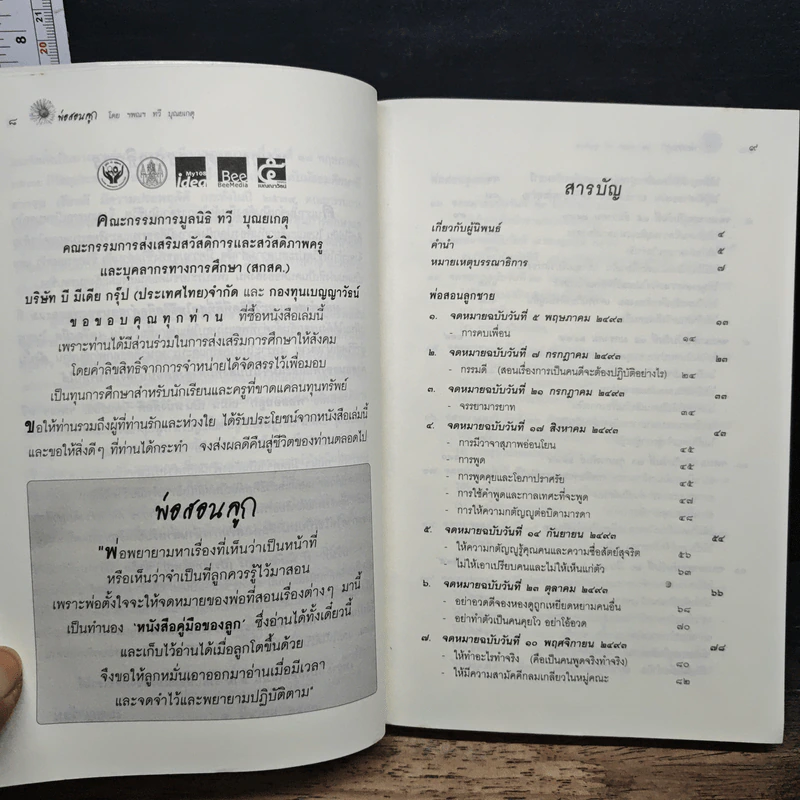 8
21
20
๘
พ่อสอนลูก โดย ฯพณฯ ทวี บุณยเกตุ
My108 idea
Bee BeeMedia
เบญญาวัธน์
คณะกรรมการมูลนิธิ ทวี บุณยเกตุ
คณะกรรมการส่งเสริมสวัสดิการและสวัสดิภาพครู
และบุคลากรทางการศึกษา (สกสค.)
บริษัท บี มีเดีย กรุ๊ป (ประเทศไทย)จำกัด และ กองทุนเบญญาวัธน์
ขอขอบคุณทุกท่าน ที่ซื้อหนังสือเล่มนี้
เพราะท่านได้มีส่วนร่วมในการส่งเสริมการศึกษาให้สังคม
โดยค่าลิขสิทธิ์จากการจำหน่ายได้จัดสรรไว้เพื่อมอบ
เป็นทุนการศึกษาสำหรับนักเรียนและครูที่ขาดแคลนทุนทรัพย์
ขอให้ท่านรวมถึงผู้ที่ท่านรักและห่วงใย ได้รับประโยชน์จากหนังสือเล่มนี้
และขอให้สิ่งดีๆ ที่ท่านได้กระทำ จงส่งผลดีคืนสู่ชีวิตของท่านตลอดไป
พ่อสอนลูก
"พ่อพยายามหาเรื่องที่เห็นว่าเป็นหน้าที่
หรือเห็นว่าจำเป็นที่ลูกควรรู้ไว้มาสอน
เพราะพ่อตั้งใจจะให้จดหมายของพ่อที่สอนเรื่องต่างๆ มานี้
เป็นทำนอง 'หนังสือคู่มือของลูก' ซึ่งอ่านได้ทั้งเดี๋ยวนี้
และเก็บไว้อ่านได้เมื่อลูกโตขึ้นด้วย
จึงขอให้ลูกหมั่นเอาออกมาอ่านเมื่อมีเวลา
และจดจำไว้และพยายามปฏิบัติตาม"
๙
สารบัญ
เกี่ยวกับผู้นิพนธ์ ๔
คำนำ ๕
หมายเหตุบรรณาธิการ ๗
พ่อสอนลูกชาย
๑. จดหมายฉบับวันที่ ๕ พฤษภาคม ๒๔๙๓ ๑๓
- การคบเพื่อน ๑๔
๒. จดหมายฉบับวันที่ ๗ กรกฎาคม ๒๔๙๓ ๒๓
- กรรมดี (สอนเรื่องการเป็นคนดีจะต้องปฏิบัติอย่างไร) ๒๔
๓. จดหมายฉบับวันที่ ๒๑ กรกฎาคม ๒๔๙๓ ๓๓
- จรรยามารยาท ๓๔
๔. จดหมายฉบับวันที่ ๑๗ สิงหาคม ๒๔๙๓ ๔๓
- การมีวาจาสุภาพอ่อนโยน ๔๕
- การพูด ๔๕
- การพูดคุยและโอภาปราศรัย ๔๕
- การใช้คำพูดและกาลเทศะที่จะพูด ๔๗
- การให้ความกตัญญูต่อบิดามารดา ๔๘
๕. จดหมายฉบับวันที่ ๑๔ กันยายน ๒๔๙๓ ๕๔
- ให้ความกตัญญูรู้คุณคนและความซื่อสัตย์สุจริต ๕๖
- ไม่ให้เอาเปรียบคนและไม่ให้เห็นแก่ตัว ๖๓
๖. จดหมายฉบับวันที่ ๒๓ ตุลาคม ๒๔๙๓ ๖๖
- อย่าอวดดีจองหองดูถูกเหยียดหยามคนอื่น ๖๘
- อย่าทำตัวเป็นคนคุยโว อย่าโอ้อวด ๗๐
๗. จดหมายฉบับวันที่ ๑๐ พฤศจิกายน ๒๔๙๓ ๗๘
- ให้ทำอะไรทำจริง (คือเป็นคนพูดจริงทำจริง) ๘๐
- ให้มีความสามัคคีกลมเกลียวในหมู่คณะ ๘๒